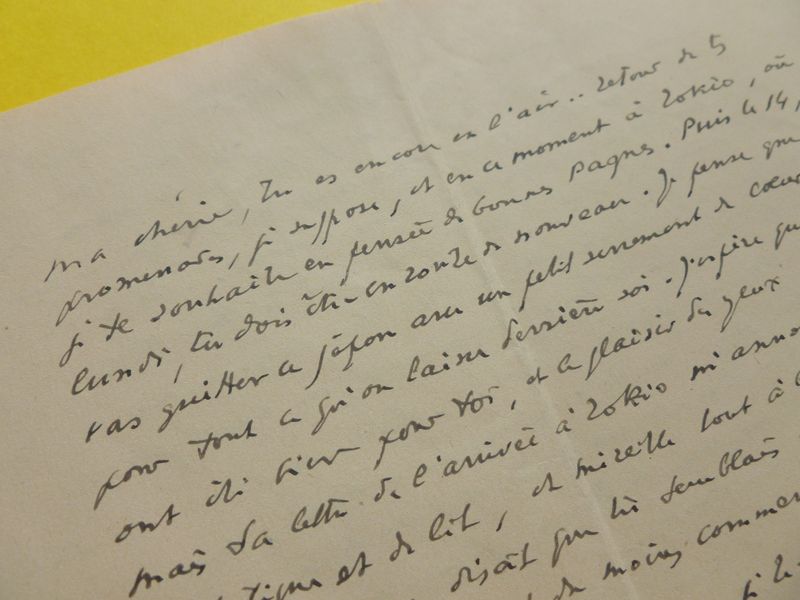 ma chérie, tu es encore en l'air.. retour de ts
promenades, je suppose, et en ce moment à Tokio, où
je te souhaite en pensée de bonnes Pagnes. Puis le 14,
lundi, tu dois être en route de nouveau. Je pense que
vas quitter ce japon avec un petit serrement de coeur
pour tout ce qu'on laisse derrière soi. J'espère que
ont été pour toi, et le plaisir des yeux
mais ta lettre de l'arrivée à Tokio m'anno
et de lit, et mireille tout à
disait que tu semblais
moins commen
je